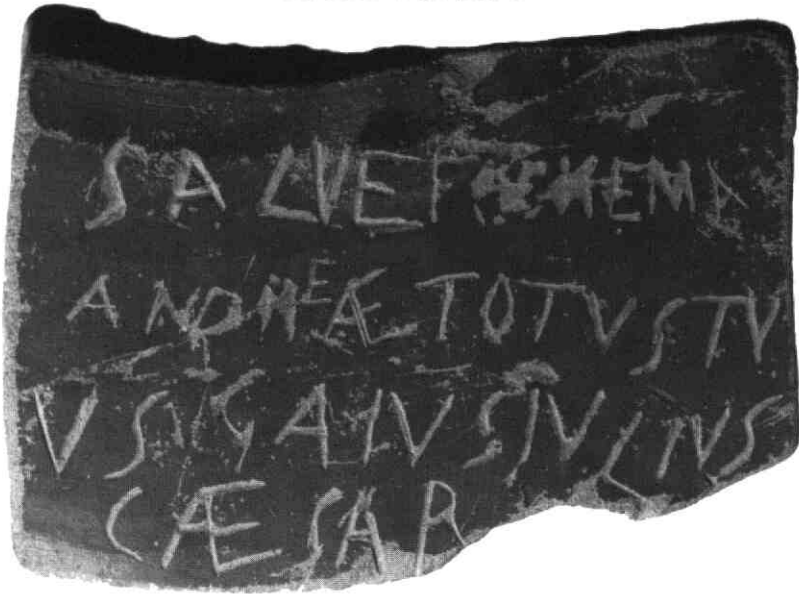 SALVE
TOTVS TV
VS GAIVS IVLIVS
CÆSAR